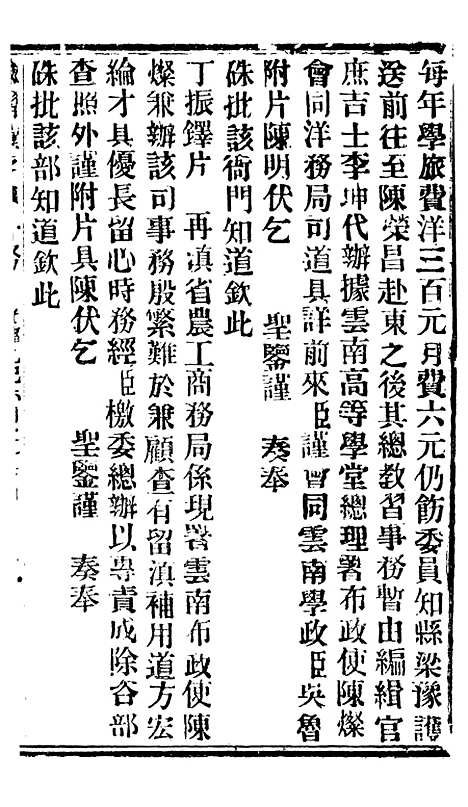 每年學旅費洋三百元月費六元仍飭委員知縣梁豫護
送前往至陳榮昌赴東之後其總教習事務暫由編緝官
庶吉士李坤代辦據雲南高等學堂總理署布政使陳燦
會同洋務局司道具詳前來臣謹會同雲南學政臣吳魯
附片陳明伏乞　聖鑒謹　奏奉
硃批該衙門知道欽此
丁振鐸片　再滇省農工商務局係現署雲南布政使陳
燦兼辦該司事務殷繁難於兼顧查有留滇補用道方宏
綸才具優長留心時務經臣檄委總辦以專責成除咨部
查照外謹附片具陳伏乞　聖鑒謹　奏奉
硃批該部知道欽此